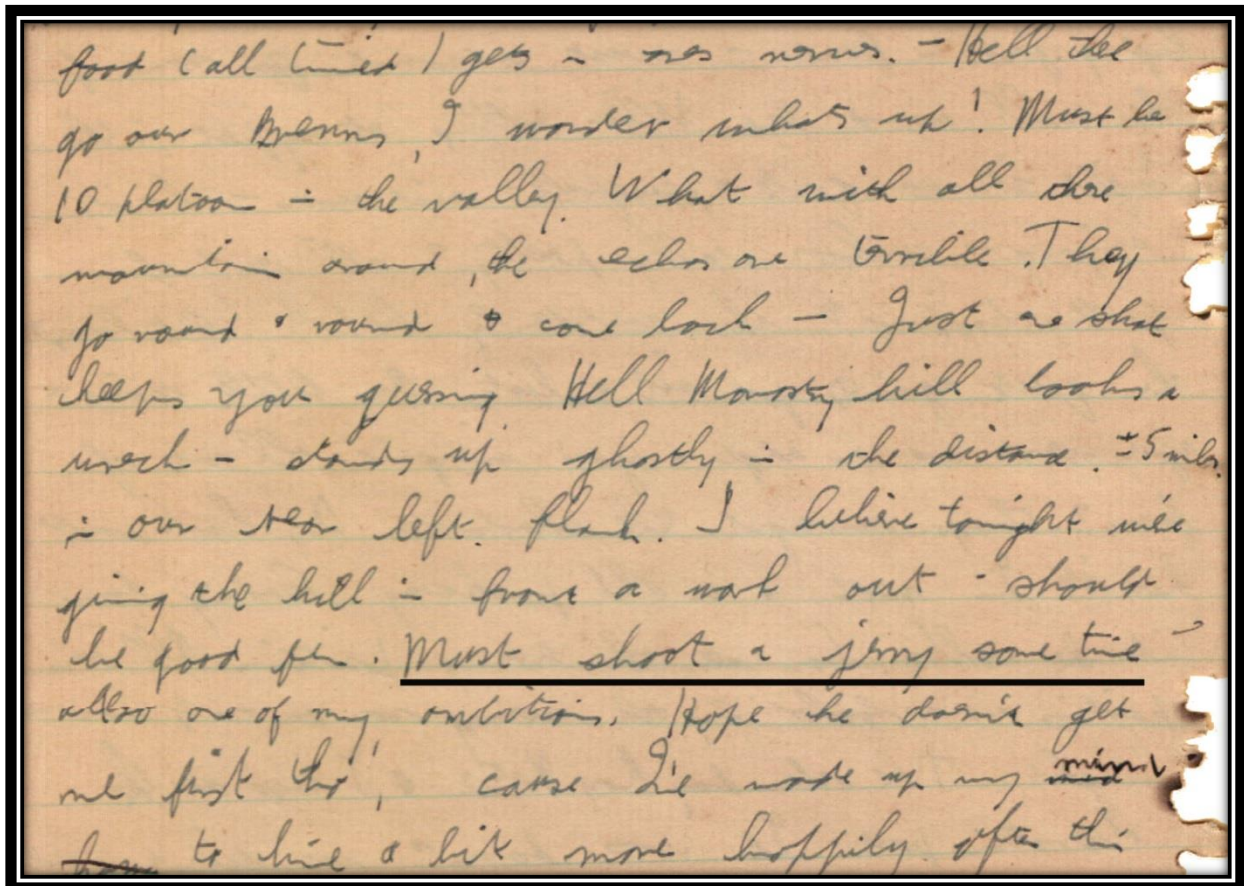 food (all tinned) gets in ones nerves. - Hell there
go our Brenns, I wonder whats up! Must be
10 platoon in the valley. What with all these
mountain around, the echos are terrible. They
go round & round & come back - Just one shot
keeps you guessing Hell Monastry hill looks a
wreck - stands up ghostly in the distance. ±5 miles
in our rear left. flank. I believe tonight we're
giving the hill in front a work out - should
be good fun. Must shoot a jerry some time -
also one of my ambitions. Hope he doesn't get
me first tho', cause I've made up my mind
to live a bit more happily after this